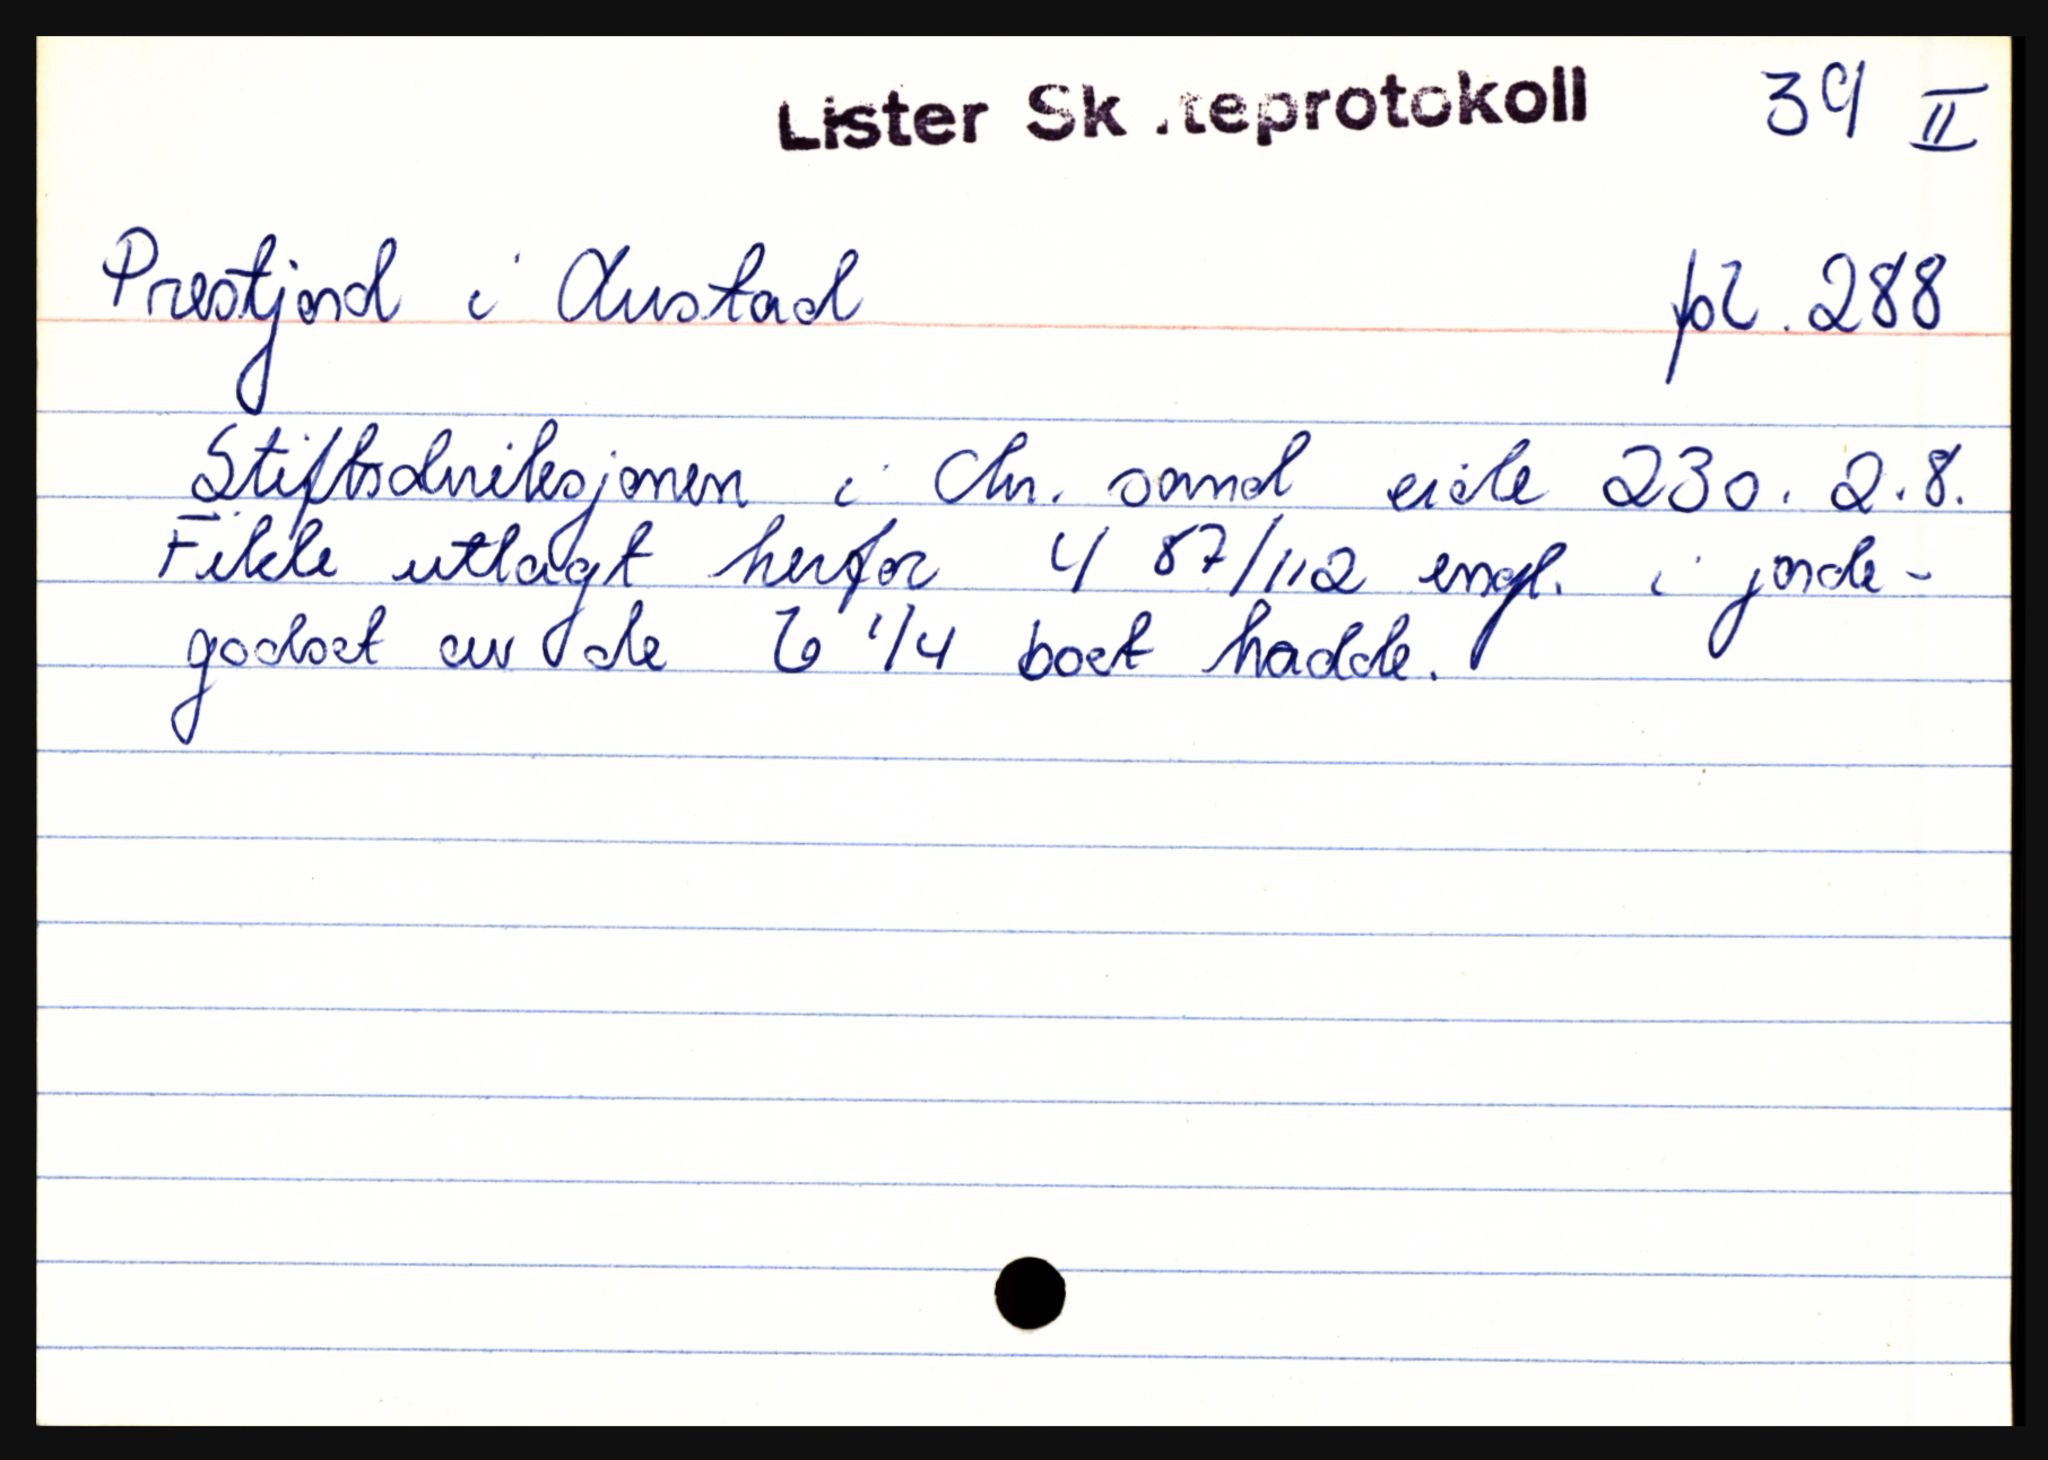 Lister Sk .teprotokoll 39 II
Prestjord i Austad fol. 288
Stiftsdireksjonen i Chr. sand eide 230. 2. 8.
Fikk utlagt herfor 4 87/112 engl. i jorde-
godset av de 6 1/4 boet hadde.